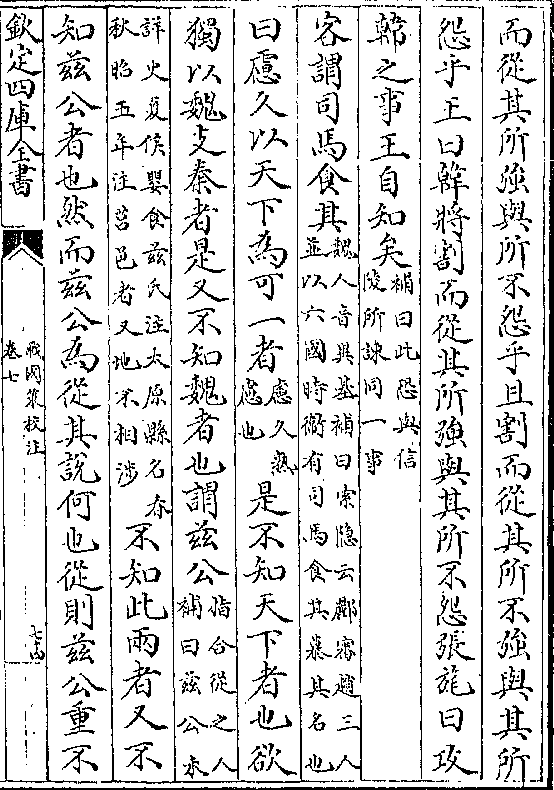 而從其所強與所不怨乎且割而從其所不強與其所
怨乎王曰韓將割而從其所強與其所不怨張旄曰攻
韓之事王自知矣補曰此恐與信陵所諫同一事
客謂司馬食其魏人音異基補曰索隱云酈審趙三人並以六國時衛有司馬食其慕其名也
曰慮久以天下為可一者慮久熟慮也是不知天下者也欲
獨以魏支秦者是又不知魏者也謂兹公指合從之人補曰兹公未
詳史夏侯嬰食兹氏注太原縣名春秋昭五年注莒邑者又地不相涉不知此兩者又不
知兹公者也然而兹公為從其說何也從則兹公重不
欽定四庫全書
戰國策校注
卷七
七十四